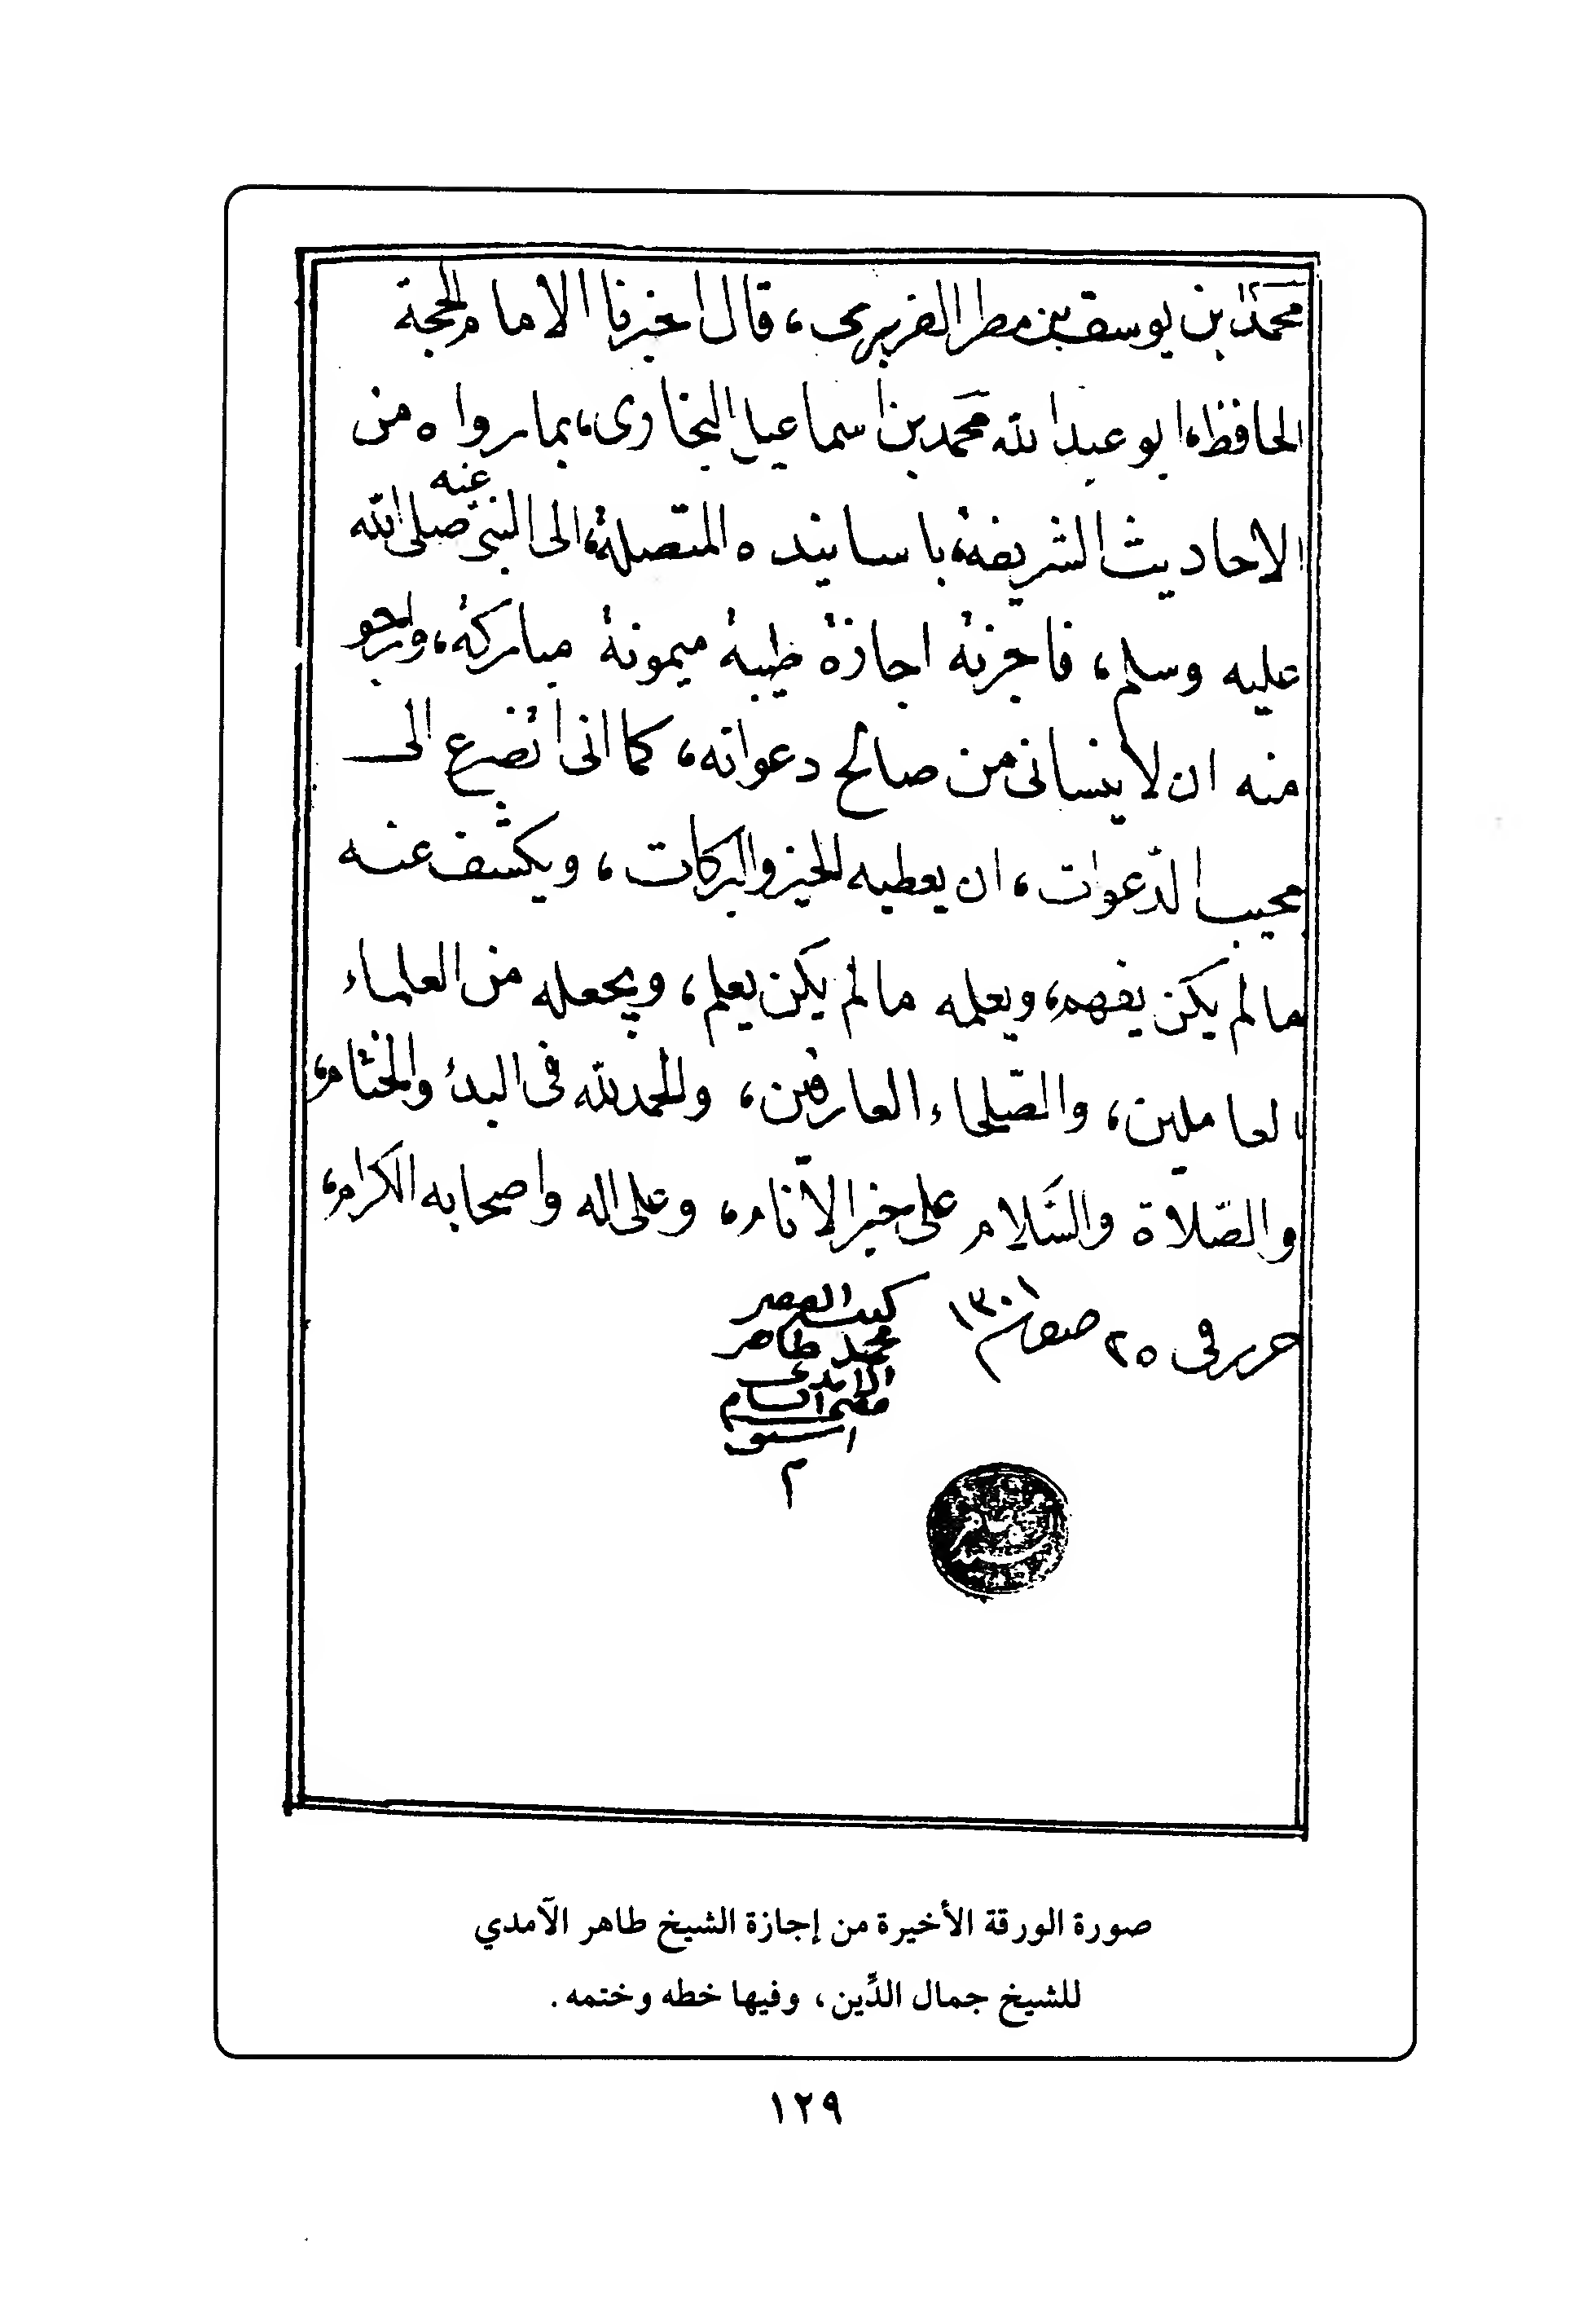 محمد بن يوسف بن مطر الفربرى، قال اخبرنا الامام الحجة
الحافظ، ابو عبد الله محمد بن اسماعيل البخارى، بما رواه من
الاحاديث الشريفة، باسانيده المتصلة، الى النبى صلى الله
عليه وسلم، فاجزته اجازة طيبة ميمونة مباركة، وارجو
منه ان لا ينسانى من صالح دعواته، كما انى اتضرع الى
مجيب الدّعوات، ان يعطيه الخير والبركات، ويكشف عنه
ما لم يكن يفهم، ويعلمه ما لم يكن يعلم، ويجعله من العلماء
العاملين، والصّلحاء العارفين، والحمد لله فى البدء والختام،
والصّلاة والسّلام على خير الانام، وعلى اله واصحابه الكرام،
حرر فى ٢٥ صفر ١٣٠١
كتبه الفقير
محمد طاهر
الامدى
صورة الورقة الأخيرة من إجازة الشيخ طاهر الآمدي
للشيخ جمال الدِّين، وفيها خطه وختمه.
١٢٩